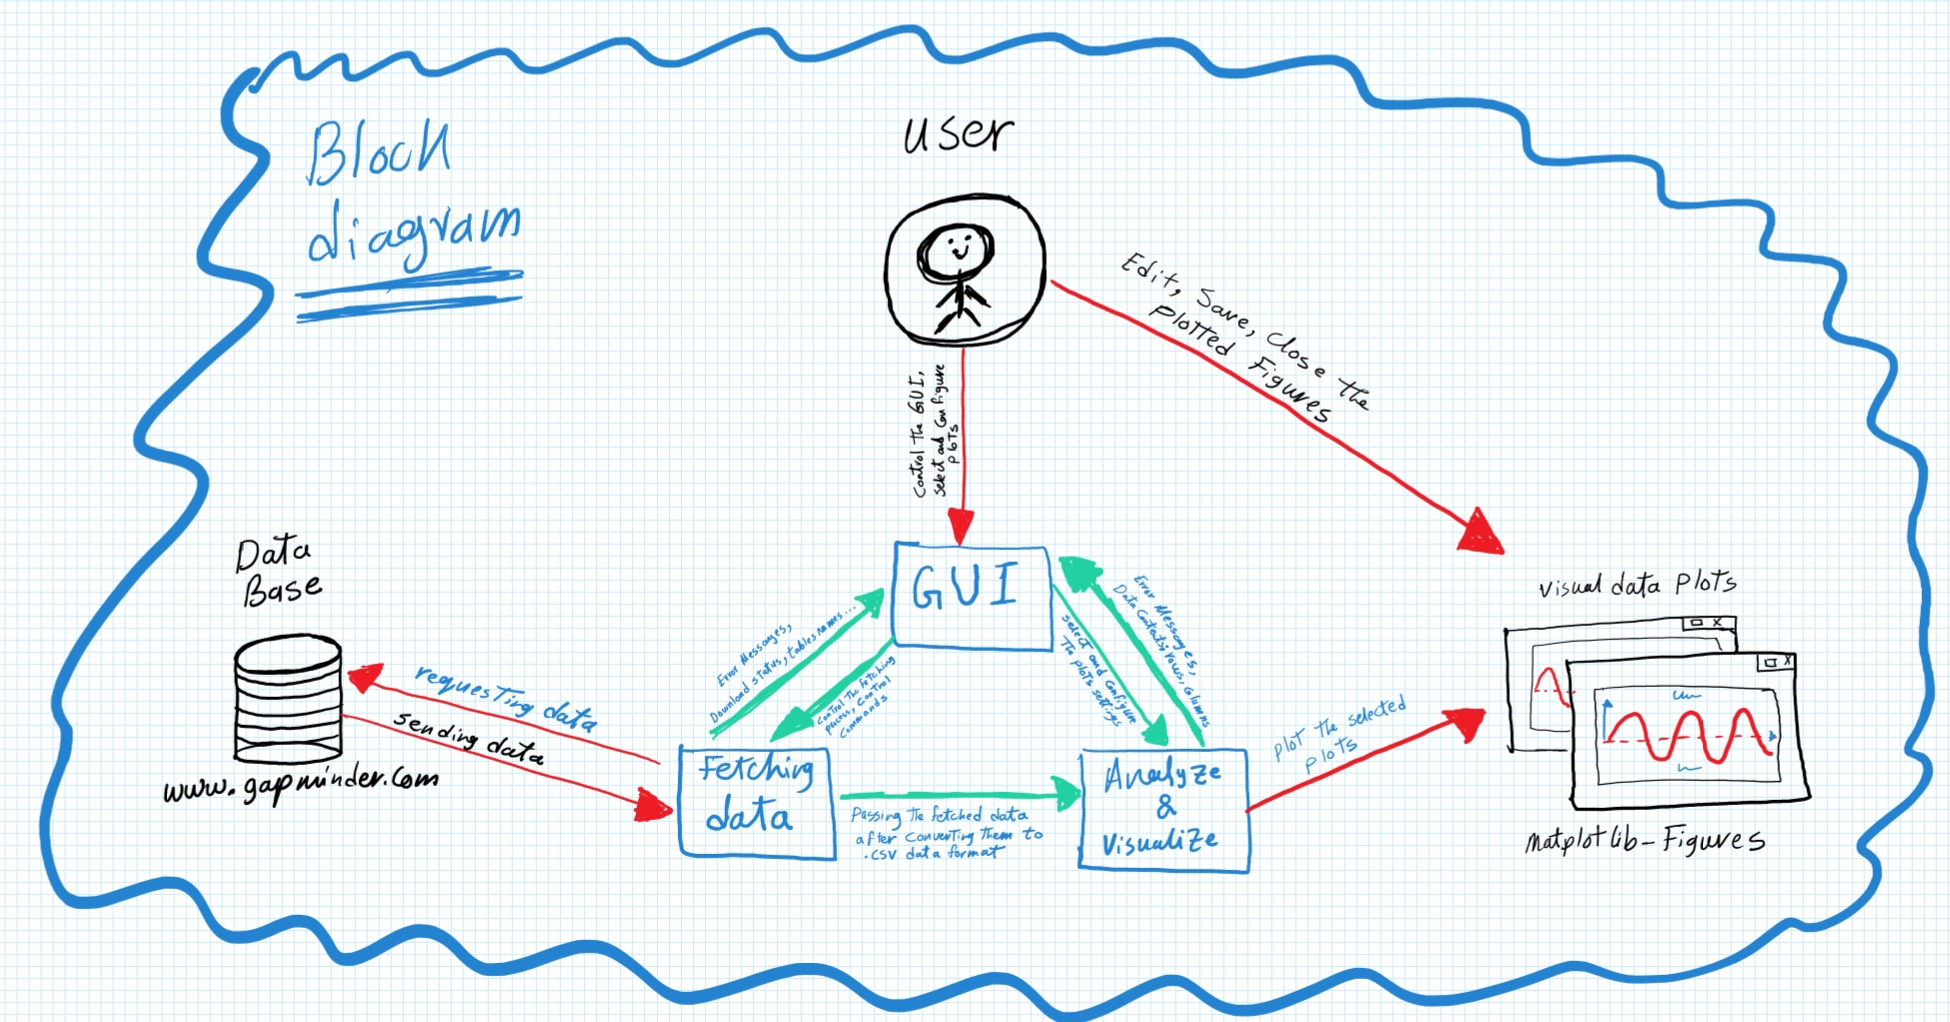 Block
diagram
user
Edit, Save, Close the
plotted Figures
Control the GUI,
select and configure
plots
Data
Base
www.gapminder.com
requesting data
sending data
GUI
Error Messages,
Download status, tables names...
Control the fetching
process, control
commands
Select and configure
the plots settings
Error Messages,
Data Contents, rows, columns
Fetching
data
Passing the fetched data
after converting them to
.CSV data format
Analyze
&
Visualize
plot the selected
plots
visual data plots
X
X
matplotlib-Figures